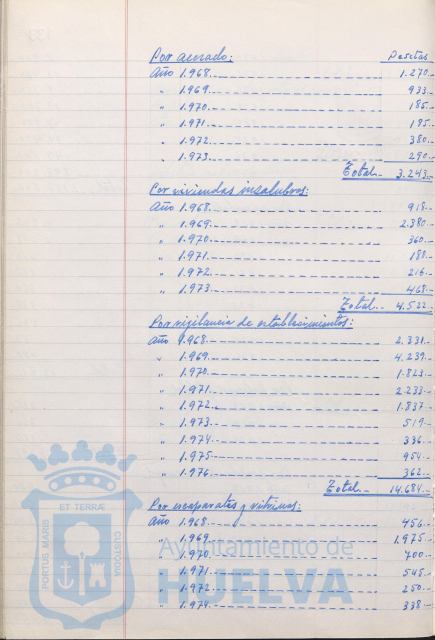 Por acerado: Pesetas
Año 1.968. 1.270.-
" 1.969. 933.-
" 1.970. 185.-
" 1.971. 185.-
" 1.972. 380.-
" 1.973. 290.-
Total.- 3.243.-
Por viviendas insalubres:
Año 1.968. 918.-
" 1.969. 2.380.-
" 1.970. 360.-
" 1.971. 180.-
" 1.972. 216.-
" 1.973. 468.-
Total.- 4.522.-
Por vigilancia de establecimientos:
Año 1.968. 2.331.-
" 1.969. 4.239.-
" 1.970. 1.823.-
" 1.971. 2.233.-
" 1.972. 1.837.-
" 1.973. 519.-
" 1.974. 336.-
" 1.975. 954.-
" 1.976. 362.-
Total.- 14.684.-
Por escaparates y vitrinas:
Año 1.968. 456.-
" 1.969. 1.975.-
" 1.970. 700.-
" 1.971. 545.-
" 1.972. 250.-
" 1.974. 338.-
PORTUS MARIS
ET TERRÆ
CUSTODIA
Ayuntamiento de
HUELVA